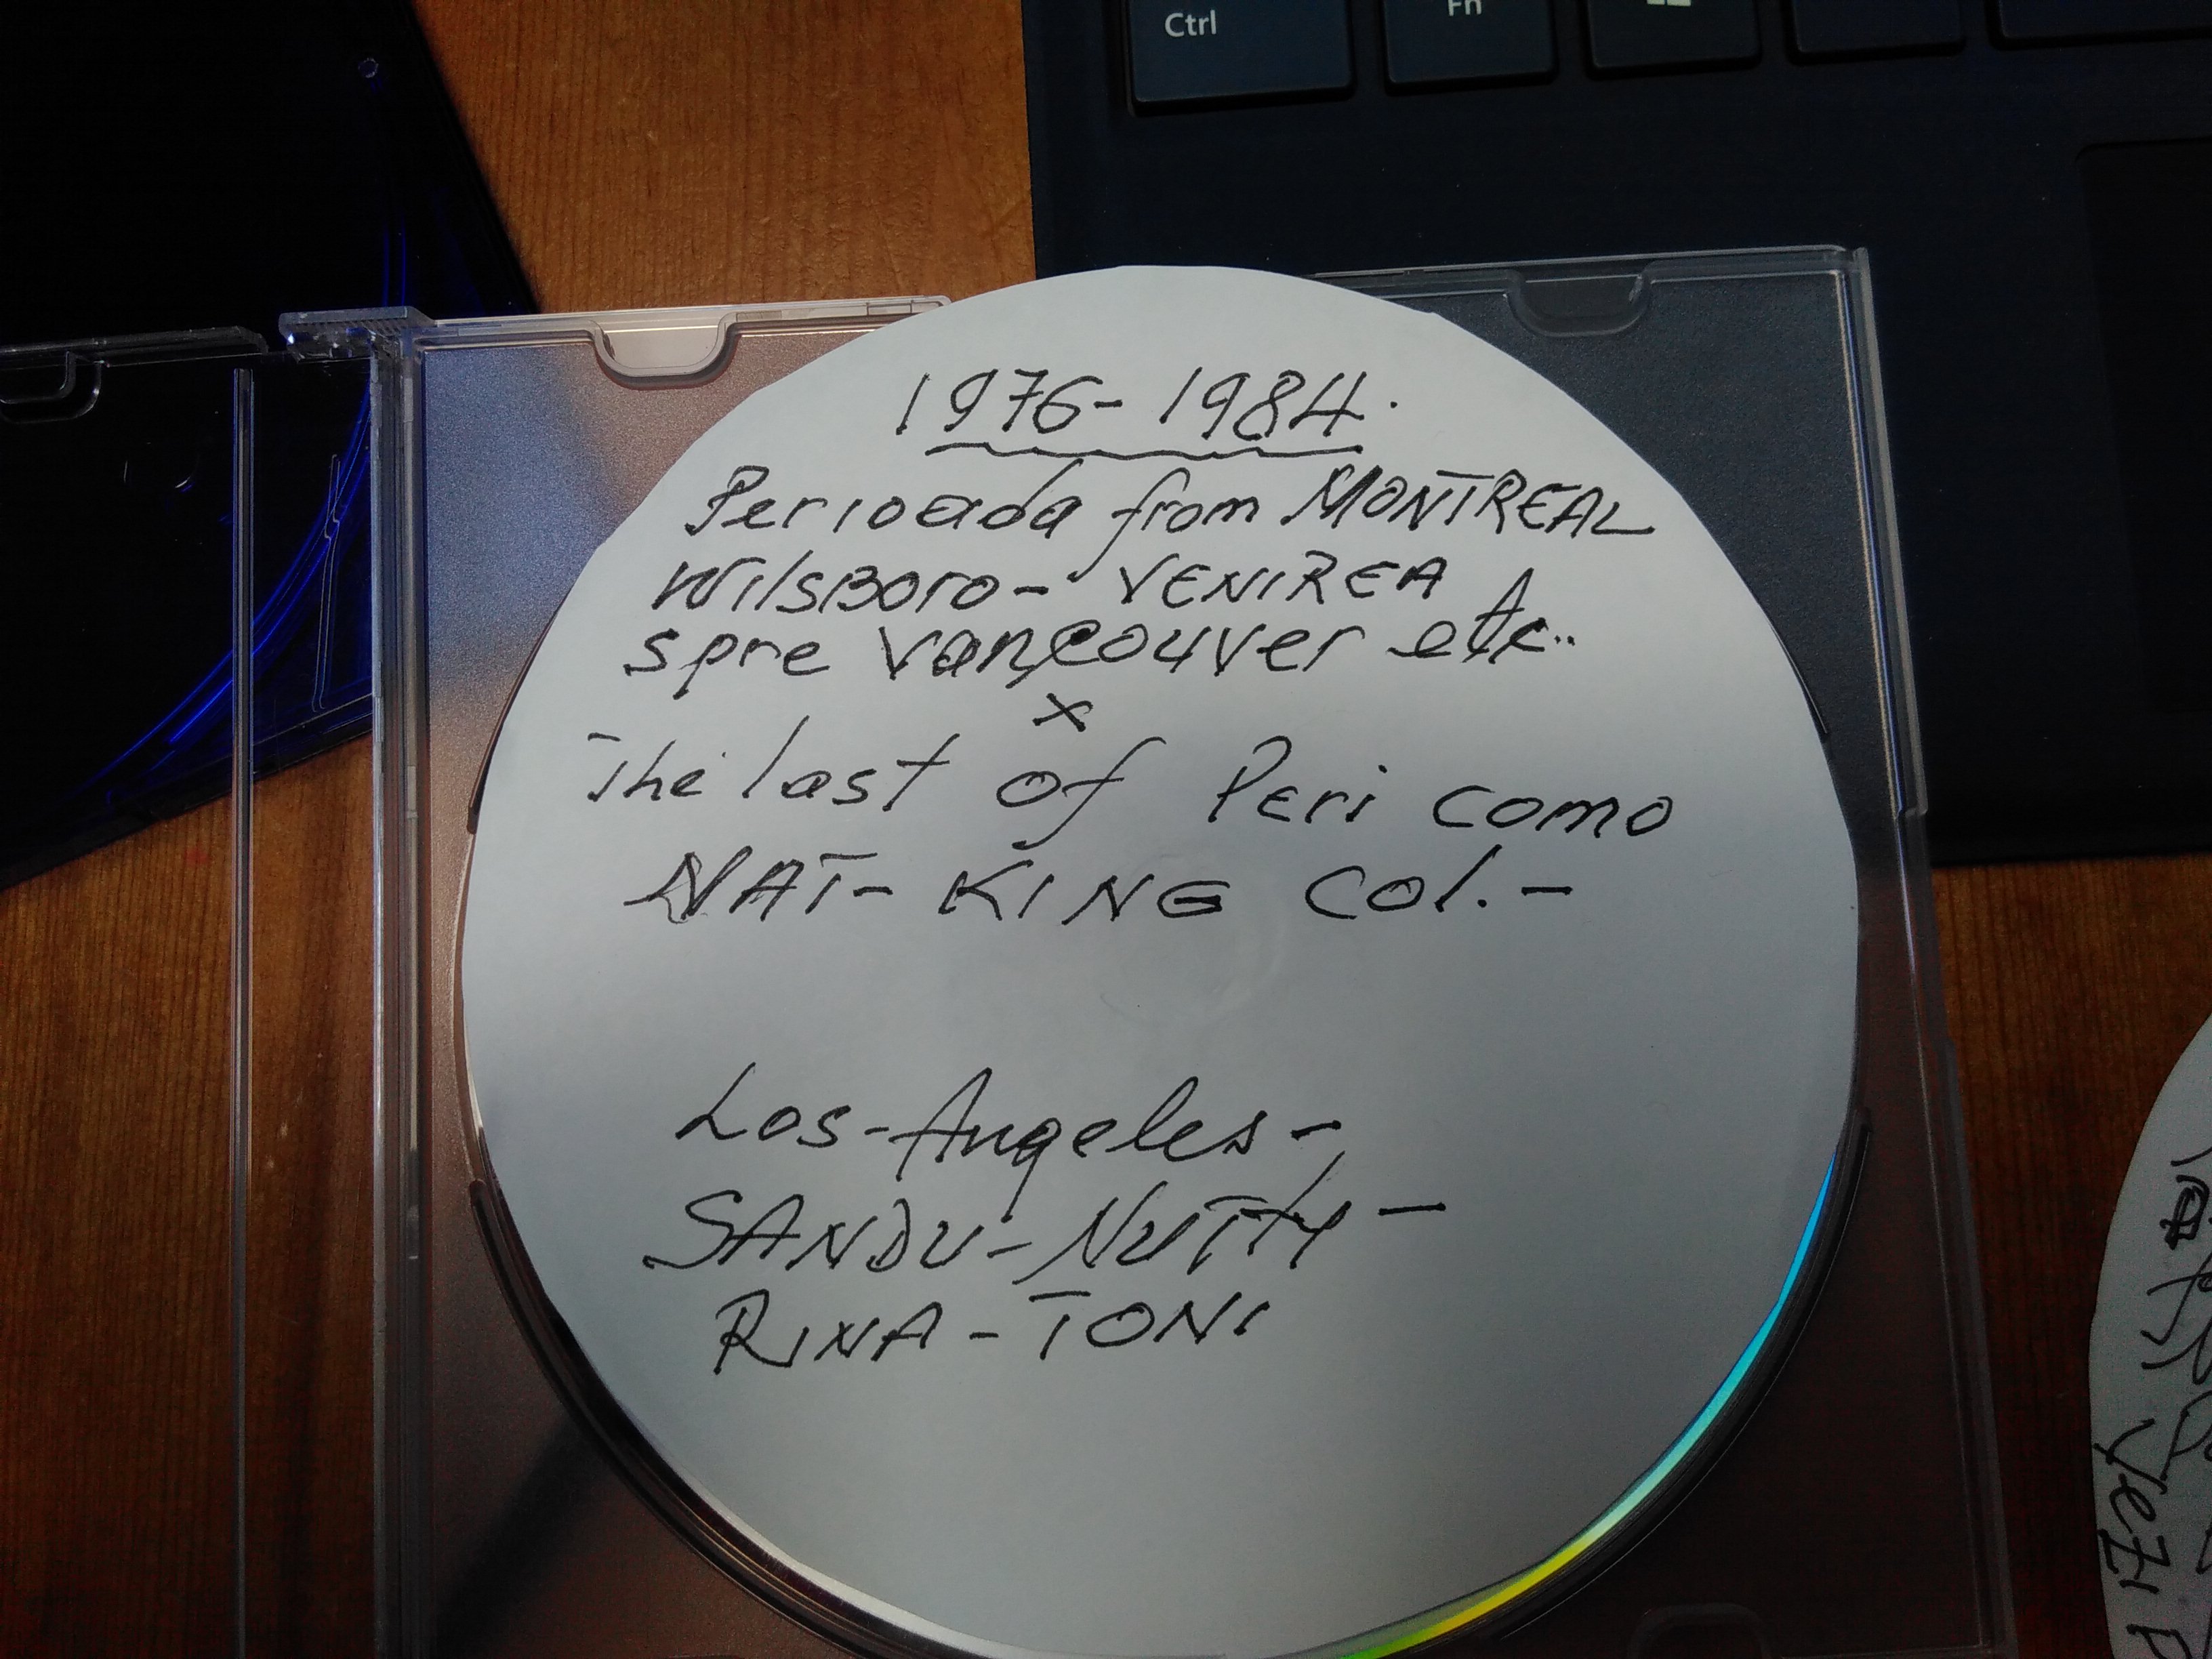 Ctrl
Fn
1976-1984.
Perioada from MONTREAL
WilsBoro- VENIREA
spre Vancouver etc..
x
The last of Peri como
NAT- KING Col.-
Los-Angeles-
SANDU-NUTTY-
RINA-TONI